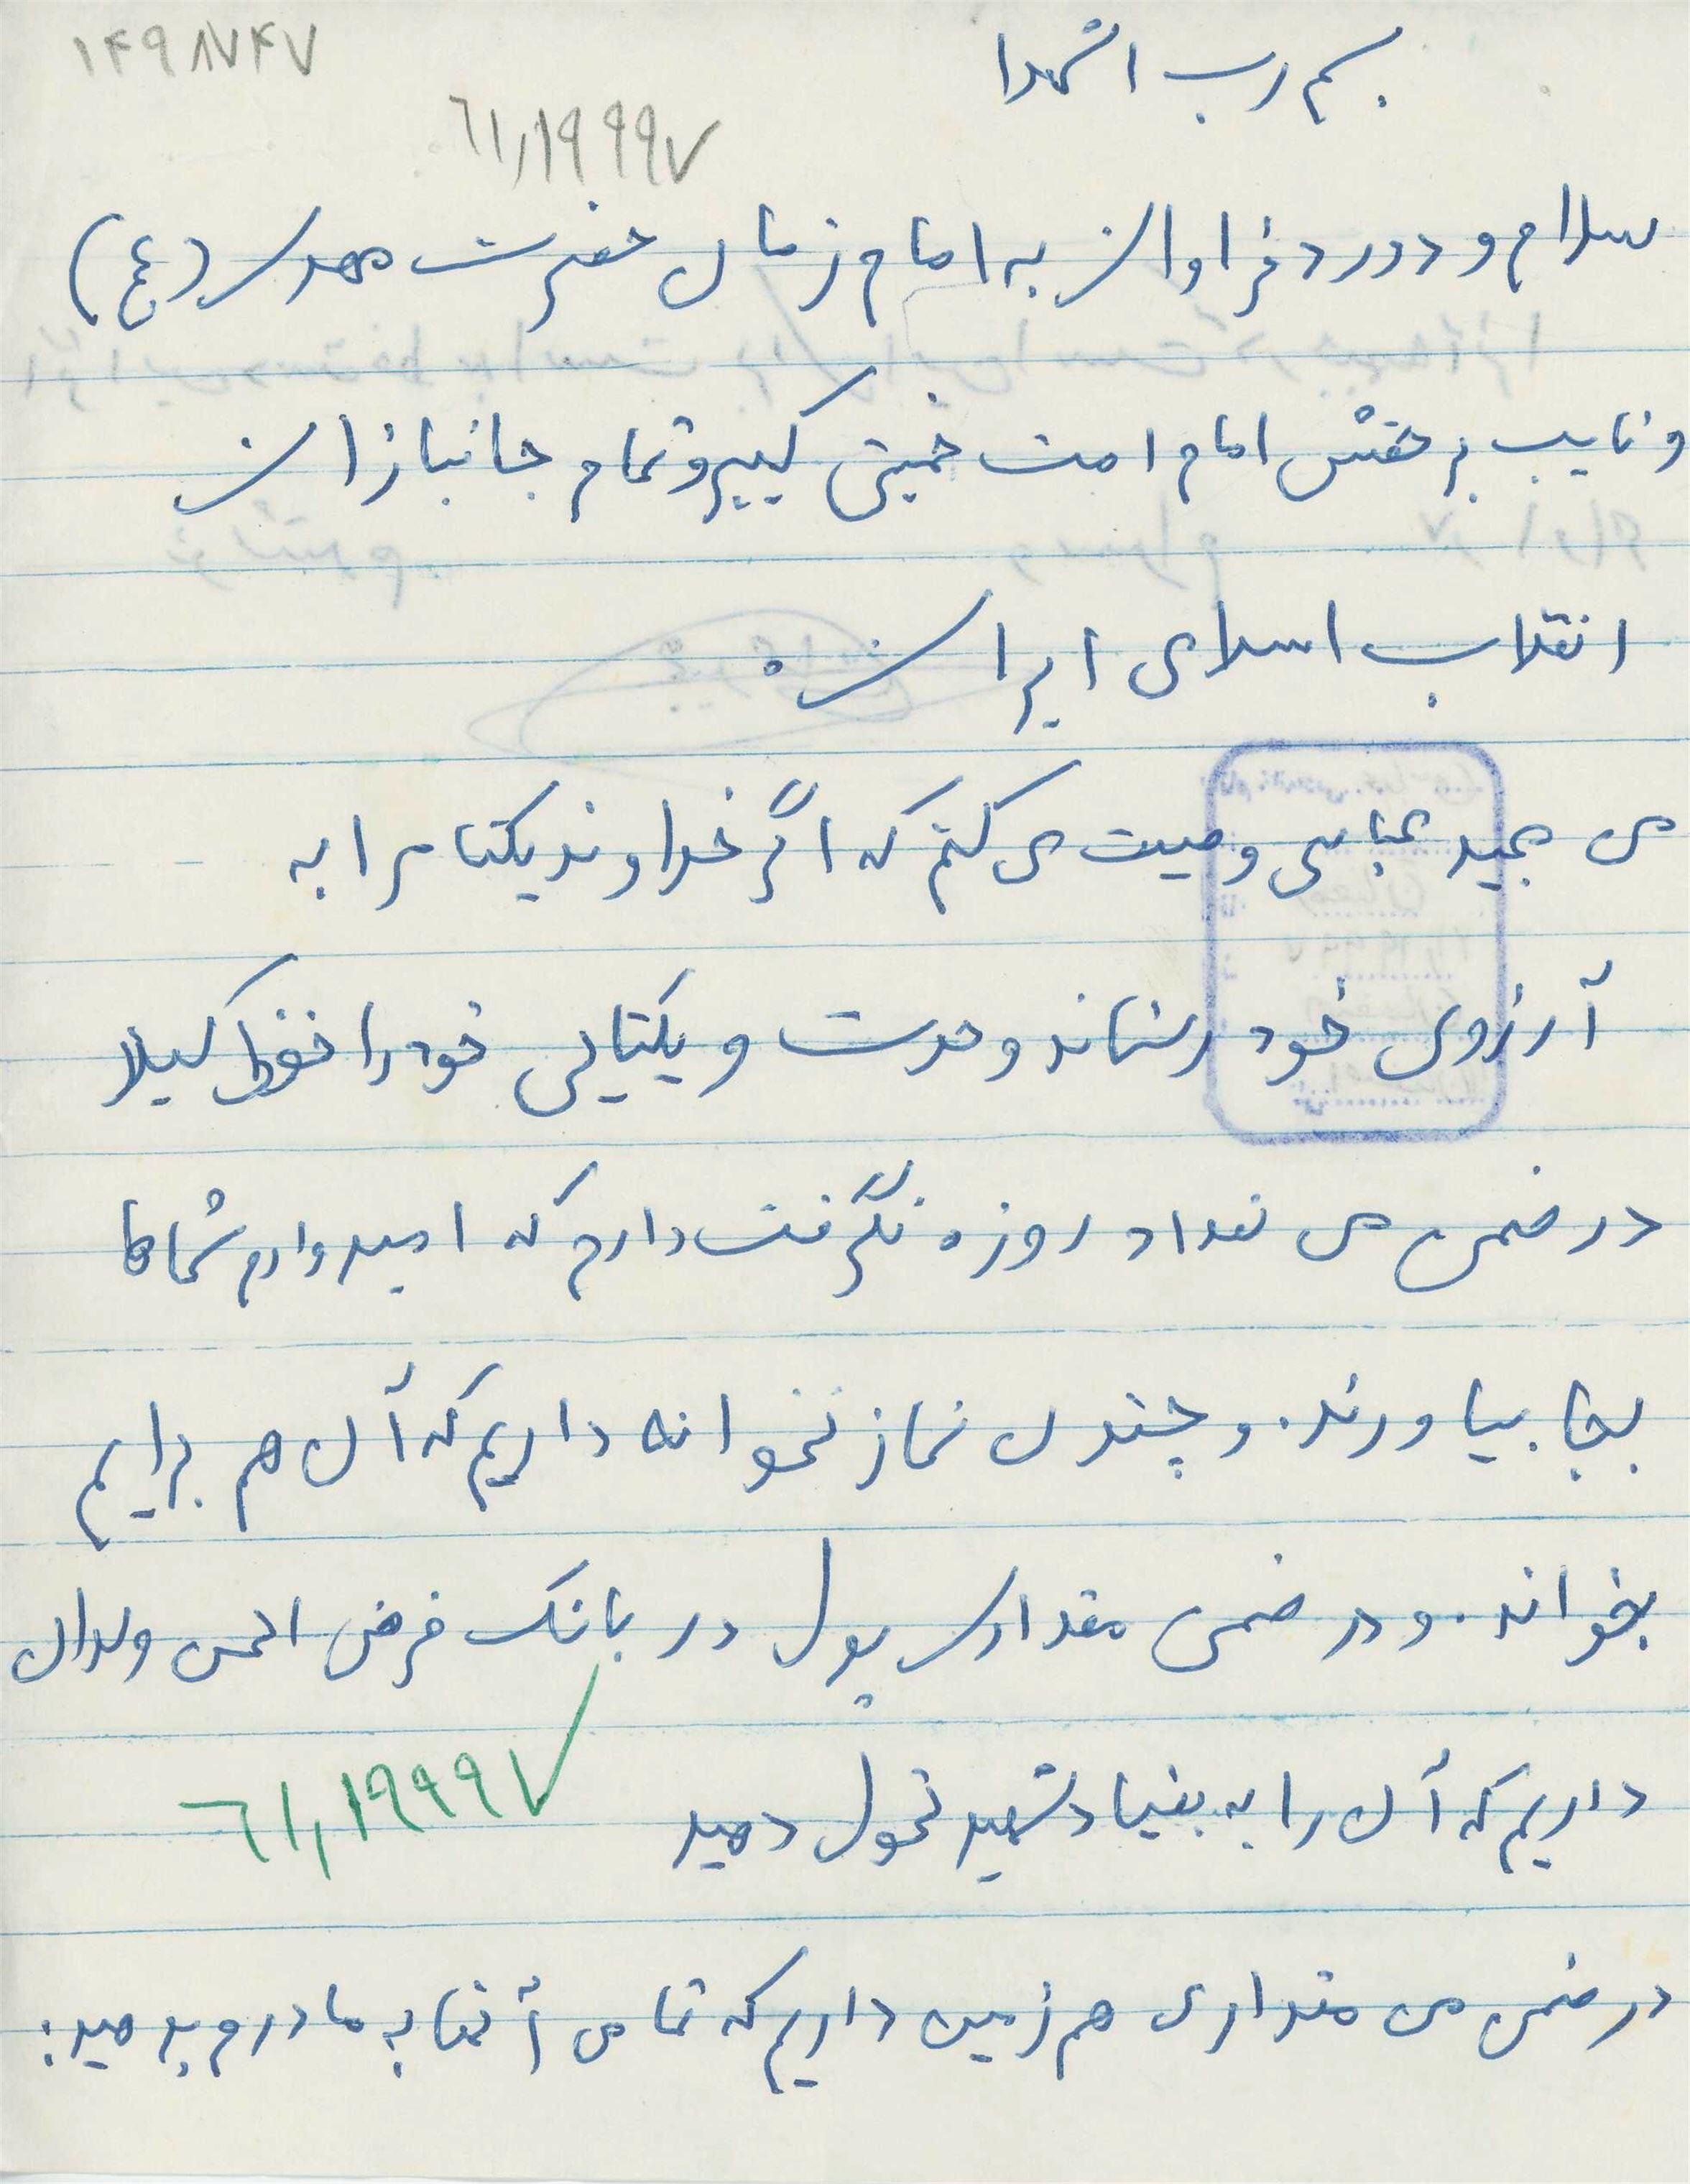 ۱۴۹۸۷۴۷
بسم رب الشهدا
۶۱٫۱۹۹۹۷
سلام و درود فراوان به امام زمان حضرت مهدی (عج)
و نایب بر حقش امام امت خمینی کبیر و تمام جانبازان
انقلاب اسلامی ایران.
من مجید عباسی وصیت می کنم که اگر خداوند یکتا مرا به
آرزوی خود رساند وحدت و یکتایی خود را حفظ کنید
در ضمن من تعداد روزه نگرفت دارم که امیدوارم شماها
بجا بیاورند. و چندن نماز نخوانه داریم که آن هم برایم
بخواند. و در ضمن مقداری پول در بانک قرض الحسن
داریم که آن را به بنیاد شهید تحول دهید
۶۱٫۱۹۹۹۷
در ضمن من مقداری هم زمین داریم که تمامی آنها به مادرم بدهید: